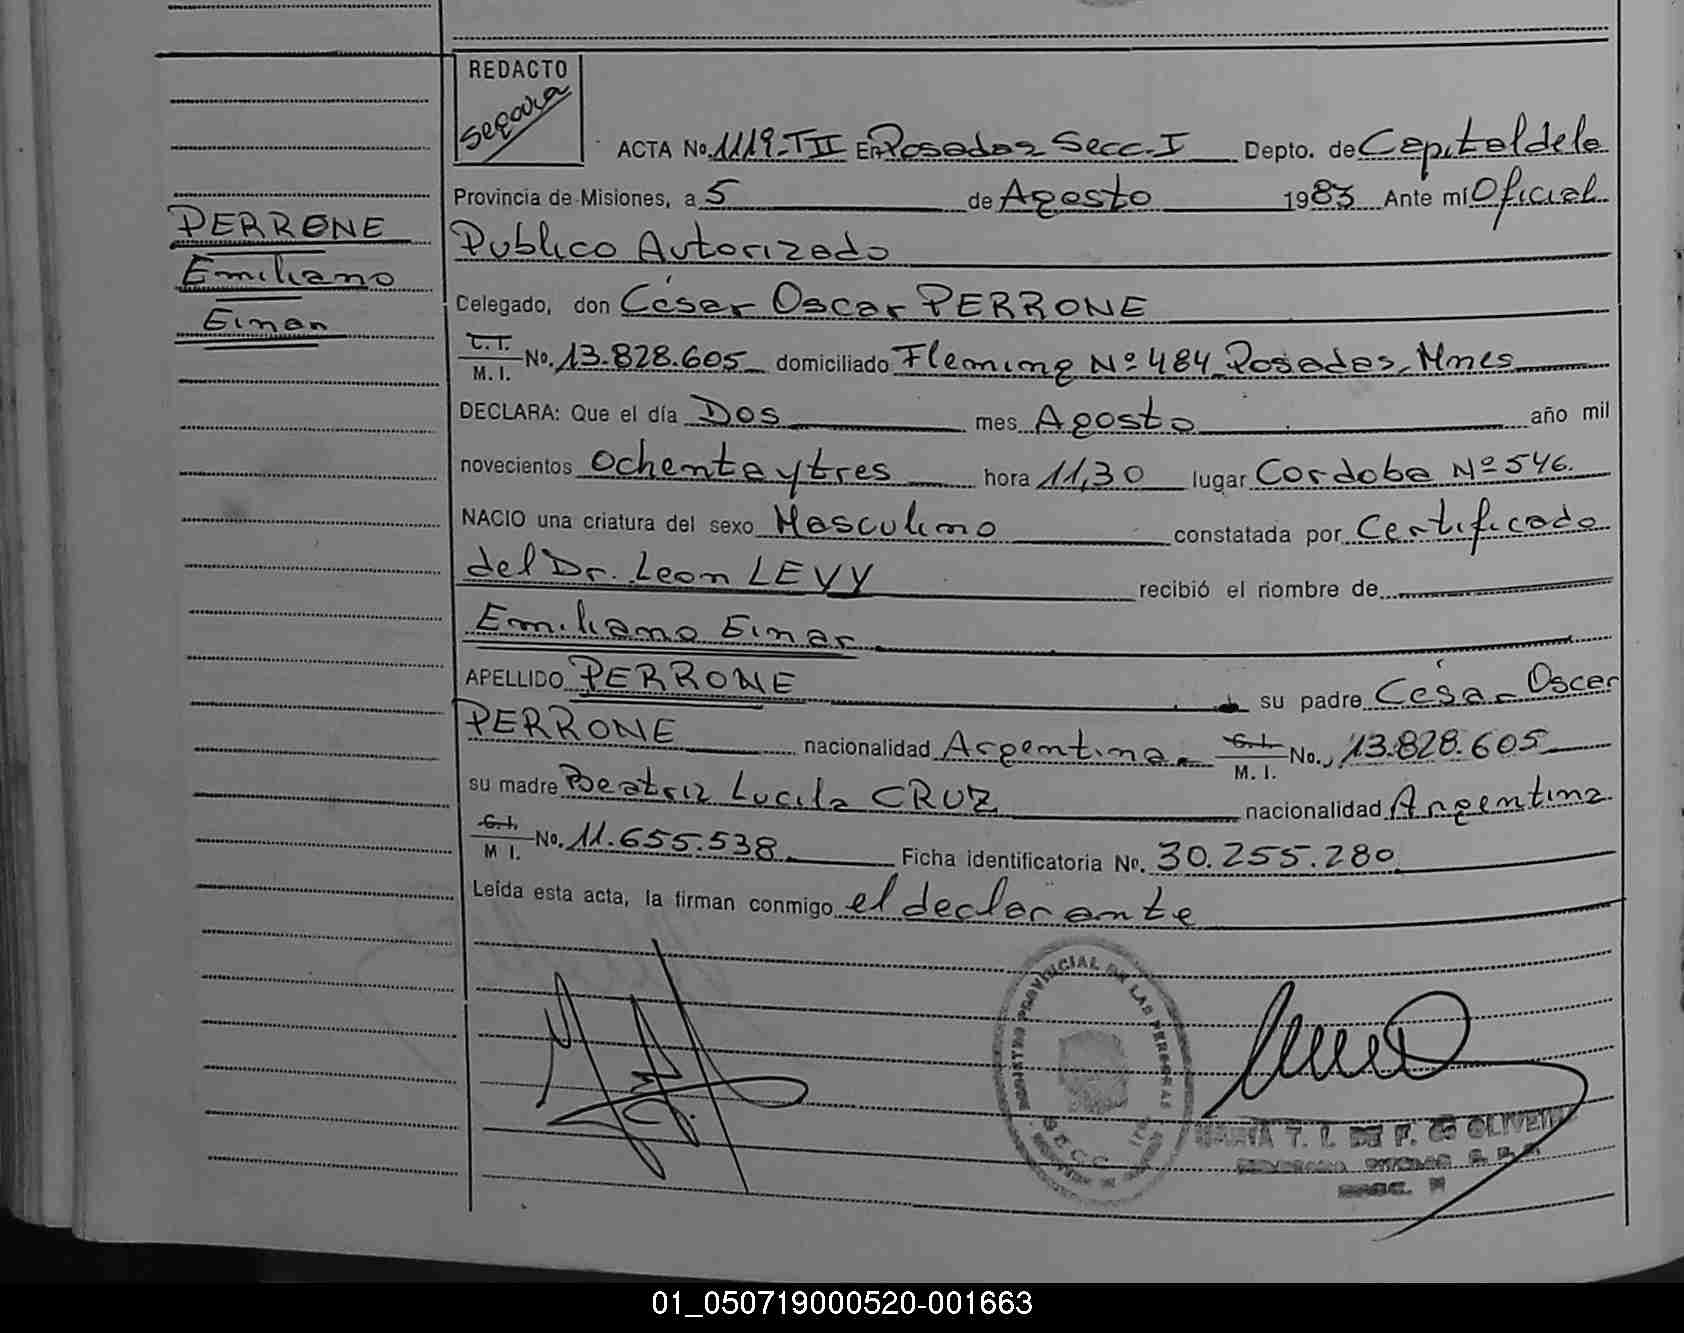 REDACTO
Segovia
ACTA No. 1119-TII En Posadas Secc. I Depto. de Capital de la
Provincia de Misiones, a 5 de Agosto 1983 Ante mí Oficial
Publico Autorizado
Celegado, don César Oscar PERRONE
C.I. M. I. No. 13.828.605 domiciliado Fleming Nº 484 Posadas, Mnes
DECLARA: Que el día Dos mes Agosto año mil
novecientos Ochenta y tres hora 11,30 lugar Cordoba Nº 546.
NACIO una criatura del sexo Masculino constatada por Certificado
del Dr. Leon LEVY recibió el nombre de
Emiliano Einar
APELLIDO PERRONE su padre César Oscar
PERRONE nacionalidad Argentina C.I. M. I. No. 13.828.605
su madre Beatriz Lucila CRUZ nacionalidad Argentina
C.I. M I. No. 11.655.538 Ficha identificatoria No. 30.255.280
Leída esta acta, la firman conmigo el declarante
PERRONE
Emiliano
Einar
REGISTRO PROVINCIAL DE LAS PERSONAS
SECC.
MARIA T. I. DE F. DE OLIVEIRA
01_050719000520-001663